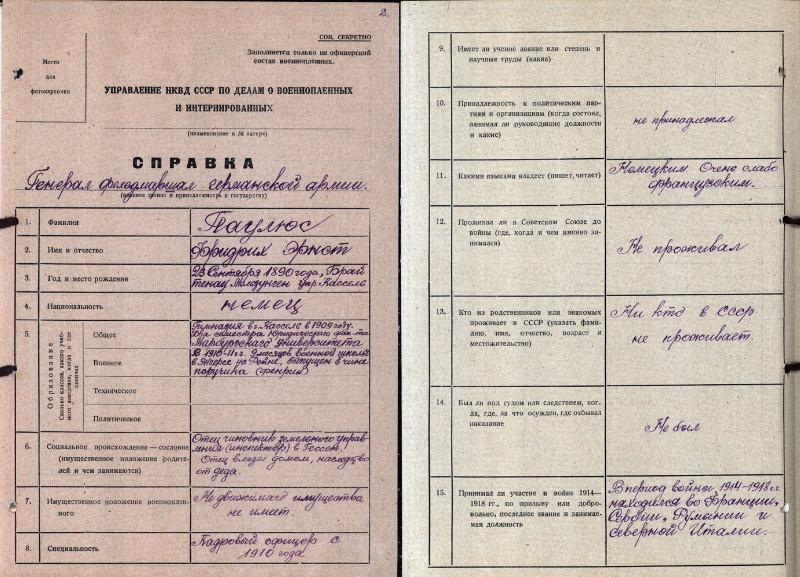 2.
СОВ. СЕКРЕТНО
Заполняется только на офицерский
состав военнопленных.
Место
для
фотокарточки
УПРАВЛЕНИЕ НКВД СССР ПО ДЕЛАМ О ВОЕННОПЛЕННЫХ
И ИНТЕРНИРОВАННЫХ
(наименование и № лагеря)
СПРАВКА
Генерал фельдмаршал германской армии.
(военное звание и принадлежность к государству)
1. Фамилия
Паулюс
2. Имя и отчество
Фридрих Эрнст
3. Год и место рождения
23 Сентября 1890 года, Брай
тенау, Мельзунген упр. Кассель
4. Национальность
немец
5. Образование
Сколько классов, какого учеб-
ного заведения, когда и где
окончил
Общее
Гимназия в г. Касселе в 1909 году.
Два семестра Юридического фак-та
Марбургского Университета
Военное
В 1910-11 гг. 9 месяцев военной школы
в на Рейне, выпущен в чине
поручика
Техническое
Политическое
6. Социальное происхождение — сословие
(имущественное положение родите-
лей и чем занимаются)
Отец чиновник земельного управ-
ления (инспектор) в Гессене.
Отец владел домом, наследство
от деда.
7. Имущественное положение военноплен-
ного
Недвижимаго имущества
не имеет.
8. Специальность
Кадровый офицер с
1910 года
9. Имеет ли ученое звание или степень и
научные труды (какие)
10. Принадлежность к политическим пар-
тиям и организациям (когда состоял,
занимал ли руководящие должности
и какие)
не принадлежал
11. Какими языками владеет (пишет, читает)
Немецким. Очень слабо
французским.
12. Проживал ли в Советском Союзе до
войны (где, когда и чем именно за-
нимался)
Не проживал
13. Кто из родственников или знакомых
проживает в СССР (указать фами-
лию, имя, отчество, возраст и
местожительство)
Ни кто в СССР
не проживает.
14. Был ли под судом или следствием, ког-
да, где, за что осужден, где отбывал
наказание
Не был
15. Принимал ли участие в войне 1914—
1918 гг., по призыву или добро-
вольно, последнее звание и занимае-
мая должность
В период войны 1914-1918 г.г.
находился во Франции,
Сербии, Румынии и
Северной Италии.